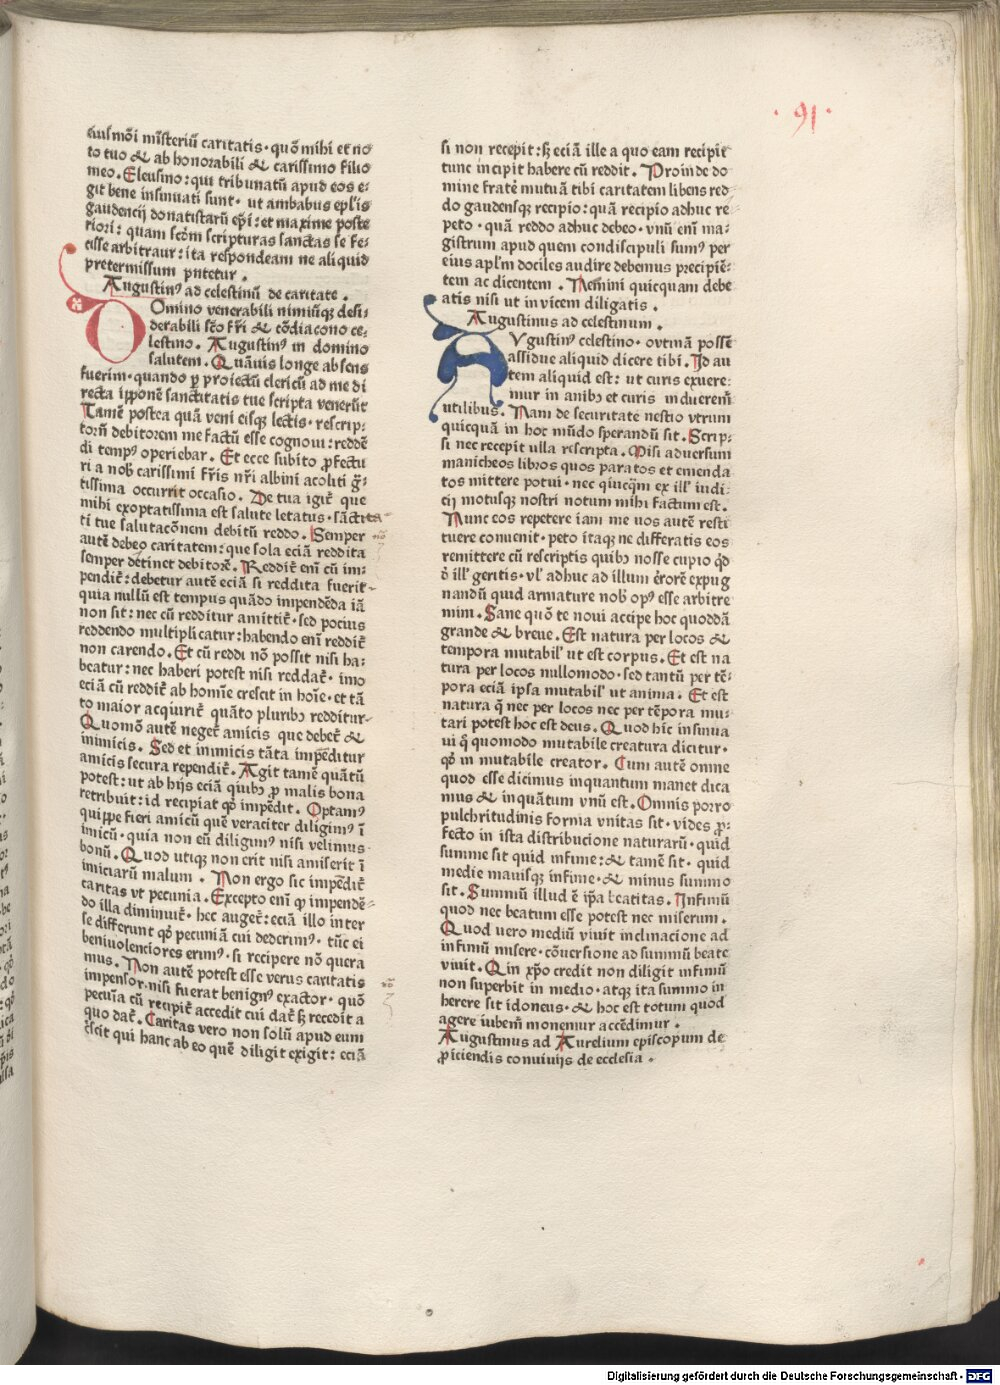 ·91·
eiusmōi mīsteriū caritatis·quō mihi et no
to tuo & ab honorabili & carissimo filio
meo. Eleusino: qui tribunatū apud eos e-
git bene insinuati sunt· ut ambabus ep̄lis
gaudencij donatistarū ep̄i: et maxime poste
riori: quam scd̄m scripturas sanctas se fe-
cisse arbitraur: ita respondeam ne aliquid
pretermissum pntetur.
Augustinꝰ ad celestinū de caritate.
Omino venerabili nimiūqꝫ desi-
derabili scō fr̄i & cōdiacono ce-
lestino. Augustinꝰ in domino
salutem. Quāuis longe absens
fuerim·quando ꝑ proiectū clericū ad me di
recta ipponē sanctitatis tue scripta venerūt
Tamē postea quā veni eisqꝫ lectis·rescrip-
torū debitorem me factū esse cognoui: reddē
di tempꝰ operiebar. Et ecce subito ꝓfectu
ri a nob̄ carissimi fr̄is nr̄i albini acoliti gͣ-
tissima occurrit occasio. De tua igit̄ que
mihi exoptatissima est salute letatus·sāctita-
ti tue salutacōnem debitū reddo. Semper
autē debeo caritatem: que sola eciā reddita
semper detinet debitorē. Reddit̄ enī cū im-
pendit̄: debetur autē eciā si reddita fuerit-
quia nullū est tempus quādo impendēda iā
non sit: nec cū redditur amittit̄·sed pocius
reddendo multiplicatur: habendo enī reddit̄
non carendo. Et cū reddi nō possit nisi ha:
beatur: nec haberi potest nisi reddat̄· imo
eciā cū reddit̄ ab homīe crescit in hoīe·et tā
to maior acquirit̄ quāto pluribꝫ redditur-
Quomō autē neget̄ amicis que debet̄ &
inimicis. Sed et inimicis tāta impēditur
amicis secura rependit̄. Agit tamē quātū
potest: ut ab hijs eciā quibꝫ ꝑ malis bona
retribuit: id recipiat qd̄ impēdit. Optamꝰ
quippe fieri amicū quē veraciter diligimꝰ ī
imicū·quia non eū diligimꝰ nisi velimus
bonū. Quod utiqꝫ non erit nisi amiserit ī
imiciarū malum. Non ergo sic impēdit̄
caritas vt pecunia. Excepto enī ꝙ impendē-
do illa diminuit̄· hec auget̄: eciā illo inter
se differunt qd̄ pecuniā cui dederimꝰ· tūc ei
beniuolenciores erimꝰ·si recipere nō quera
mus. Non autē potest esse verus caritatis
impensor·nisi fuerat benignꝰ exactor·quō
pecuīa cū recipit̄ accedit cui dat̄ sꝫ recedit a
quo dat̄. Caritas vero non solū apud eum
c̄scit qui hanc ab eo quē diligit exigit: eciā
si non recepit: sꝫ eciā ille a quo eam recipit
tunc incipit habere cū reddit. Proinde do
mine fratē mutuā tibi caritatem libens red
do gaudensqꝫ recipio: quā recipio adhuc re
peto·quā reddo adhuc debeo·vnū enī ma-
gistrum apud quem condiscipuli sumꝰ per
eius ap̄lm dociles audire debemus precipiē-
tem ac dicentem. Nemini quicquam debe
atis nisi ut in vicem diligatis.
Augustinus ad celestinum.
AVgustinꝰ celestino·ovtinā possē
assidue aliquid dicere tibi. Id au
tem aliquid est: ut curis exuere:
mur in anibꝫ et curis induerem̄
utilibus. Nam de securitate nescio vtrum
quicquā in hoc mūdo sperandū sit. Scrip-
si nec recepit ulla rescripta. Misi aduersum
manicheos libros quos paratos et emenda
tos mittere potui·nec qͥucqm̄ ex ill' iudi-
cij motusqꝫ nostri notum mihi factum est.
Nunc eos repetere iam me uos autē resti
tuere conuenit·peto itaqꝫ ne differatis eos
remittere cū rescriptis quibꝫ nosse cupio qͥd
d̄ ill' geritis·vl' adhuc ad illum ērorē expug
nandū quid armature nob̄ opꝰ esse arbitre
mini. Sane quō te noui accipe hoc quoddā
grande & breue. Est natura per locos &
tempora mutabil' ut est corpus. Et est na
tura per locos nullomodo·sed tantū per tē-
pora eciā ipsa mutabil' ut anima. Et est
natura q̄ nec per locos nec per tēpora mu-
tari potest hoc est deus. Quod hic insinua
ui q̄ quomodo mutabile creatura dicitur·
qd̄ in mutabile creator. Cum autē omne
quod esse dicimus inquantum manet dica
mus & inquātum vnū est. Omnis porro
pulchritudinis forma vnitas sit·vides ꝓ-
fecto in ista distribucione naturarū·quid
summe sit quid infime: & tamē sit·quid
medie mauisqꝫ infime·& minus summo
sit. Summū illud ē ip̄a beatitas. Infimū
quod nec beatum esse potest nec miserum.
Quod vero mediū viuit inclinacione ad
infimū misere·cōuersione ad summū beate
viuit. Qin xp̄o credit non diligit infimū
non superbit in medio·atqꝫ ita summo in
herere sit idoneus·& hoc est totum quod
agere iubem̄ monemur accēdimur.
Augustinus ad Aurelium episcopum de
ꝓiciendis conuiuijs de ecclesia.
Digitalisierung gefördert durch die Deutsche Forschungsgemeinschaft - DFG